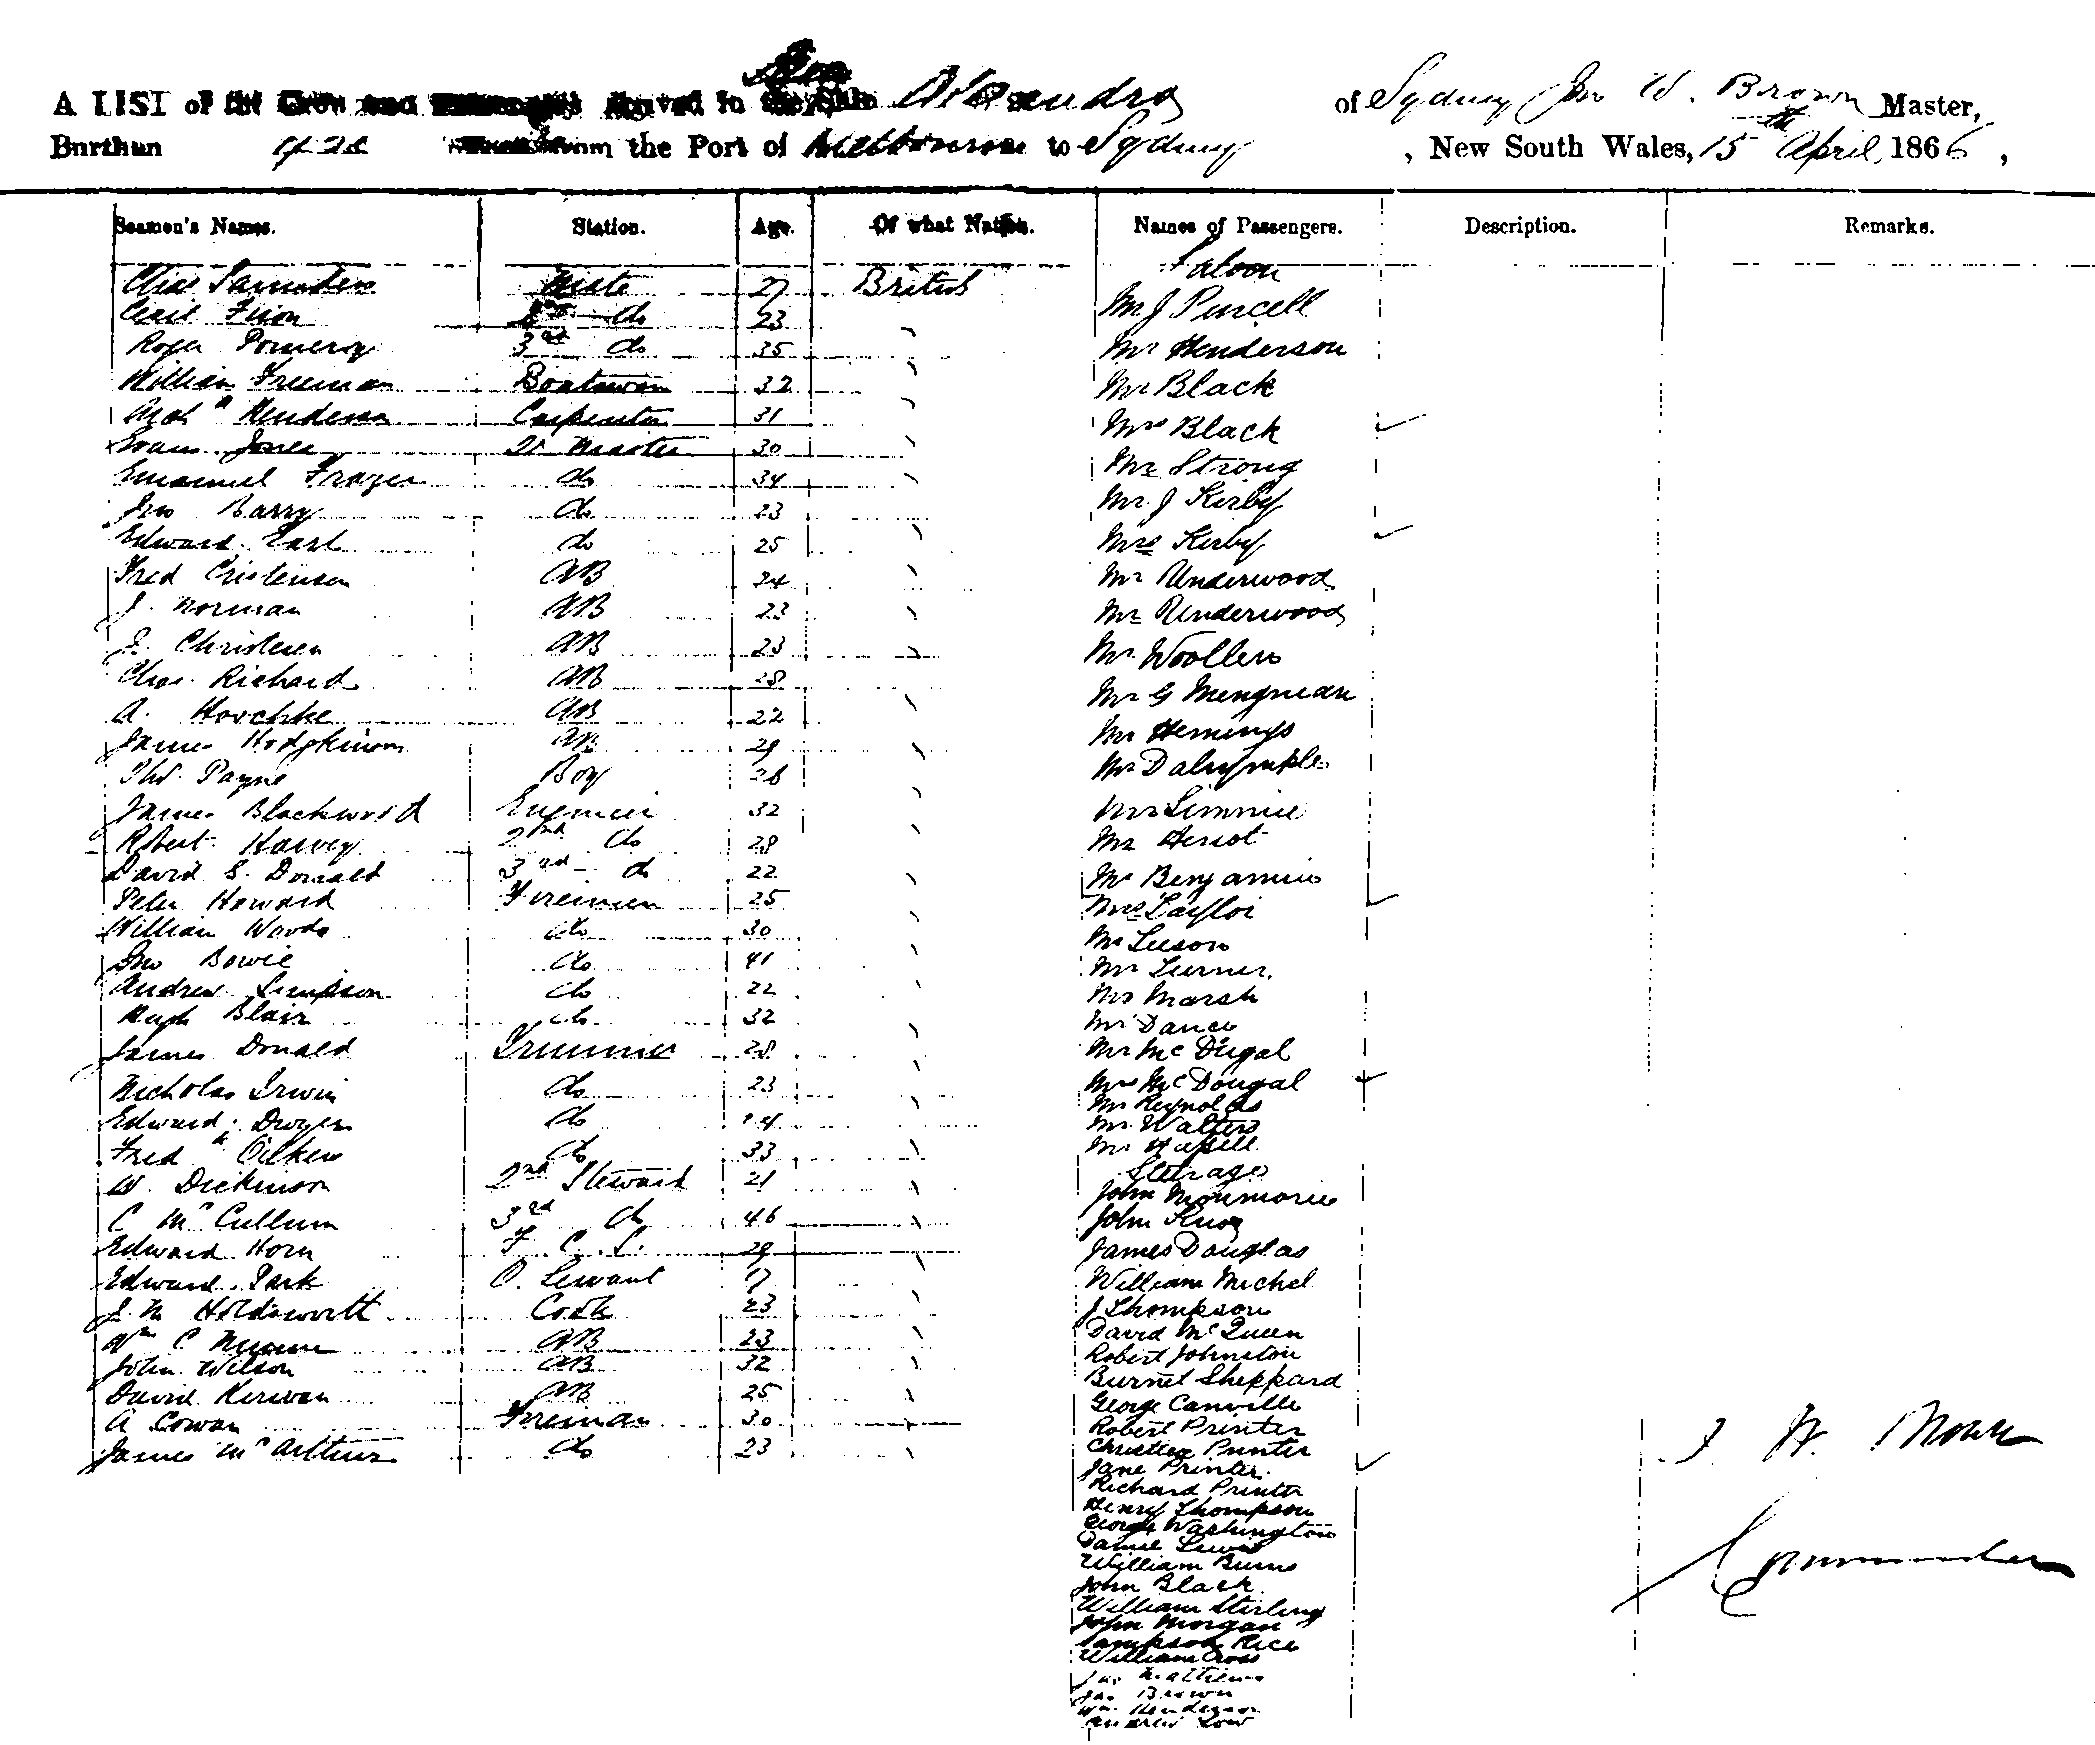 A LIST of the Crew and arrived in the Ship of Sydney Jno W. Brown Master,
Burthen from the Port of Melbourne to Sydney, New South Wales, 15th April, 1866,
Seamen's Names. Station. Age. Of what Nation. Names of Passengers. Description. Remarks.
Saloon
Chas Saunders Mate 27 British Mr J Purcell
Cecil Fison 2nd do 23 Mr Henderson
Roger Pomeroy 3rd do 35 Mr Black
William Freeman Boatswain 32 Mrs Black
Archd Henderson Carpenter 31 Mr Strong
Evans Jones Qr Master 30 Mr J Kirby
Emanuel Frazer do 34 Mrs Kirby
Jno Barry do 23 Mr Underwood
Edward Earl do 25 Mr Underwood
Fred Cristensen AB 24 Mr Woollers
J. Norman AB 23 Mr G
J. Christesen AB 23 Mr Hemings
Chas. Richard AB 28 Mr Dalrymple
A. AB 22
James Hodgkinson AB 29 Mr Heriot
Thos. Payne Boy 26 Mr Benjamin
James Blackwood Engineer 32 Mrs Taylor
Robert Harvey 2nd do 28 Mr Leeson
David S. Donald 3rd do 22 Mr Turner
Peter Howard Firemen 25 Mrs Marsh
William Woods do 30 Mr Dance
Jno Bowie do 41 Mr McDugal
Andrew Simpson do 22 Mrs McDougal
Hugh Blair do 32 Mr Reynolds
James Donald Trimmer 28 Mr Walters
Nicholas Irwin do 23 Mr
Edward Dwyer do 24 Steerage
Fredk do 33 John
W. Dickinson 2nd Steward 21 John Knox
C McCullum 3rd do 46 James Douglas
Edward Horn F. C. S. 29 William Michel
Edward Park P. Servant 17 J Thompson
J. M Holdsworth Cook 23 David McQueen
Wm C AB 23 Robert Johnston
John Wilson AB 32 Burnet Sheppard
David Kerwan AB 25 George Canville
A Cowan Fireman 30 Robert Printer
James McArthur do 23 Christian Printer
Jane Printer
Richard Printer
Henry Thompson
George Washington
Daniel Lewis
William Burns
John Black
William Stirling
John Morgan
Sampson Rice
William Cross
Jas Matthews
Jas Brown
Wm Henderson
Andrew Low
J W. Brown
Commander